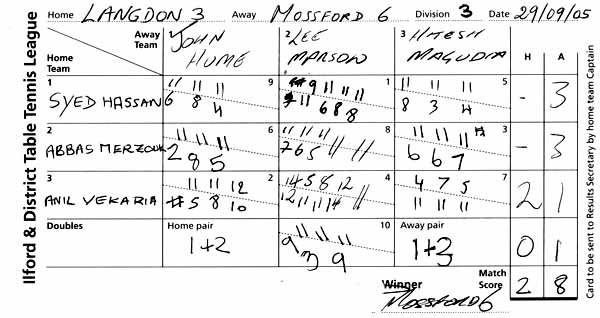 Ilford & District Table Tennis League
Home LANGDON 3 Away MOSSFORD 6 Division 3 Date 29/09/05
Away Team
Home Team
JOHN HUME
2 LEE MARSOW
3 HITESH MAGUDIA
H A
1 SYED HASSAN
9
11 11 11
6 8 4
1
9 11 11 11
11 6 8 8
5
11 11 11
8 3 4
- 3
2 ABBAS MERZOUK
6
11 11 11
2 8 5
8
11 11 11
7 6 5
3
11 11 11
6 6 7
- 3
3 ANIL VEKARIA
2
11 11 12
5 8 10
4
14 5 8 12
12 11 11 14
7
4 7 5
11 11 11
2 1
Doubles
Home pair
1+2
10
11 11 11
9 3 9
Away pair
1+3
0 1
Winner
MOSSFORD 6
Match Score
2 8
Card to be sent to Results Secretary by home team Captain